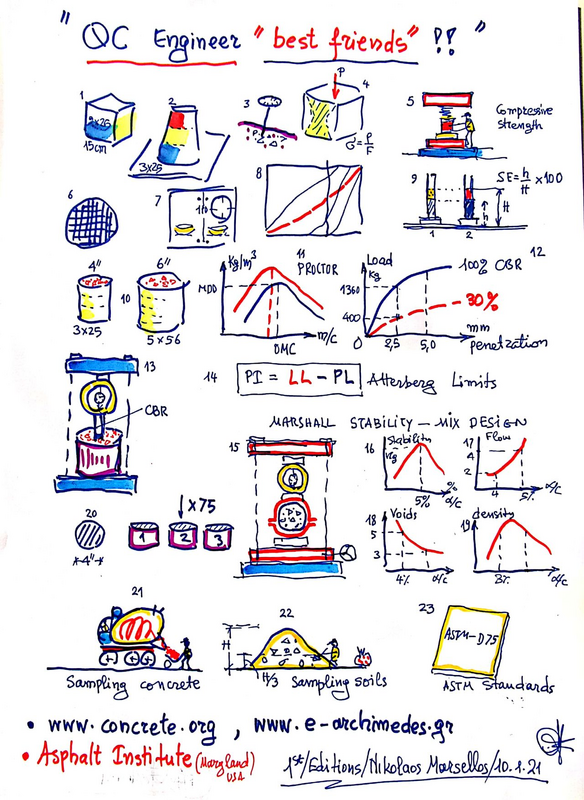 " QC Engineer "best friends" !! "
1
9x25
15cm
2
3x25
3
P
4
σ=P/F
5
Compressive
strength
6
7
8
9
SE=h/H x100
H
h
1 2
4" 6"
10
3x25
5x56
Kg/m³
11
PROCTOR
MDD
m/c
OMC
Load
Kg
100% CBR
12
1360
30%
400
0
2,5 5,0
mm
penetration
13
CBR
14
PI = LL - PL
Atterberg Limits
MARSHALL STABILITY - MIX DESIGN
15
16
Stability
Kg
%
a/c
5%
17
Flow
4
2
4
5%
a/c
18
Voids
5
3
4%
a/c
19
density
3%
a/c
20
4"
x75
1 2 3
21
Sampling concrete
22
H
H/3
Sampling soils
23
ASTM-D75
ASTM Standards
• www.concrete.org , www.e-archimedes.gr
• Asphalt Institute (Maryland)
USA
1st/Editions/Nikolaos Marsellos/10.1.21